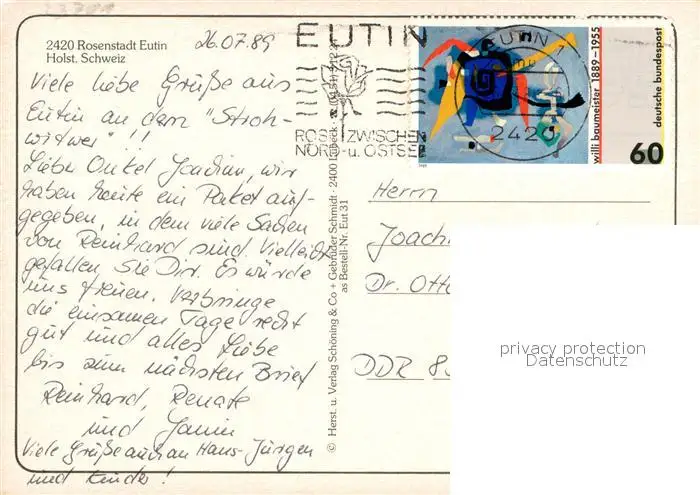 2420 Rosenstadt Eutin
Holst. Schweiz
26.07.89
Viele liebe Grüße aus
Eutin an den "Stroh-
witwer" !!
Liebe Onkel Joachim, wir
haben heute ein Paket auf-
gegeben, in dem viele Sachen
von Reinhard sind. Vielleicht
gefallen Sie Dir. Es würde
uns freuen. Verbringe
die einsamen Tage recht
gut und alles Liebe
bis zum nächsten Brief
Reinhard, Renate
und
Viele Grüße auch an Hans-Jürgen
und Kinder!
© Herst. u. Verlag Schöning & Co + Gebrüder Schmidt · 2400 Lübeck
as Bestell-Nr. Eut 31
EUTIN
ROSE ZWISCHEN
NORD- u. OSTSEE
EUTIN 1
2420
willi baumeister 1889–1955
deutsche bundespost
60
Herrn
Joachi
Dr. Otto
DDR 8
privacy protection
Datenschutz